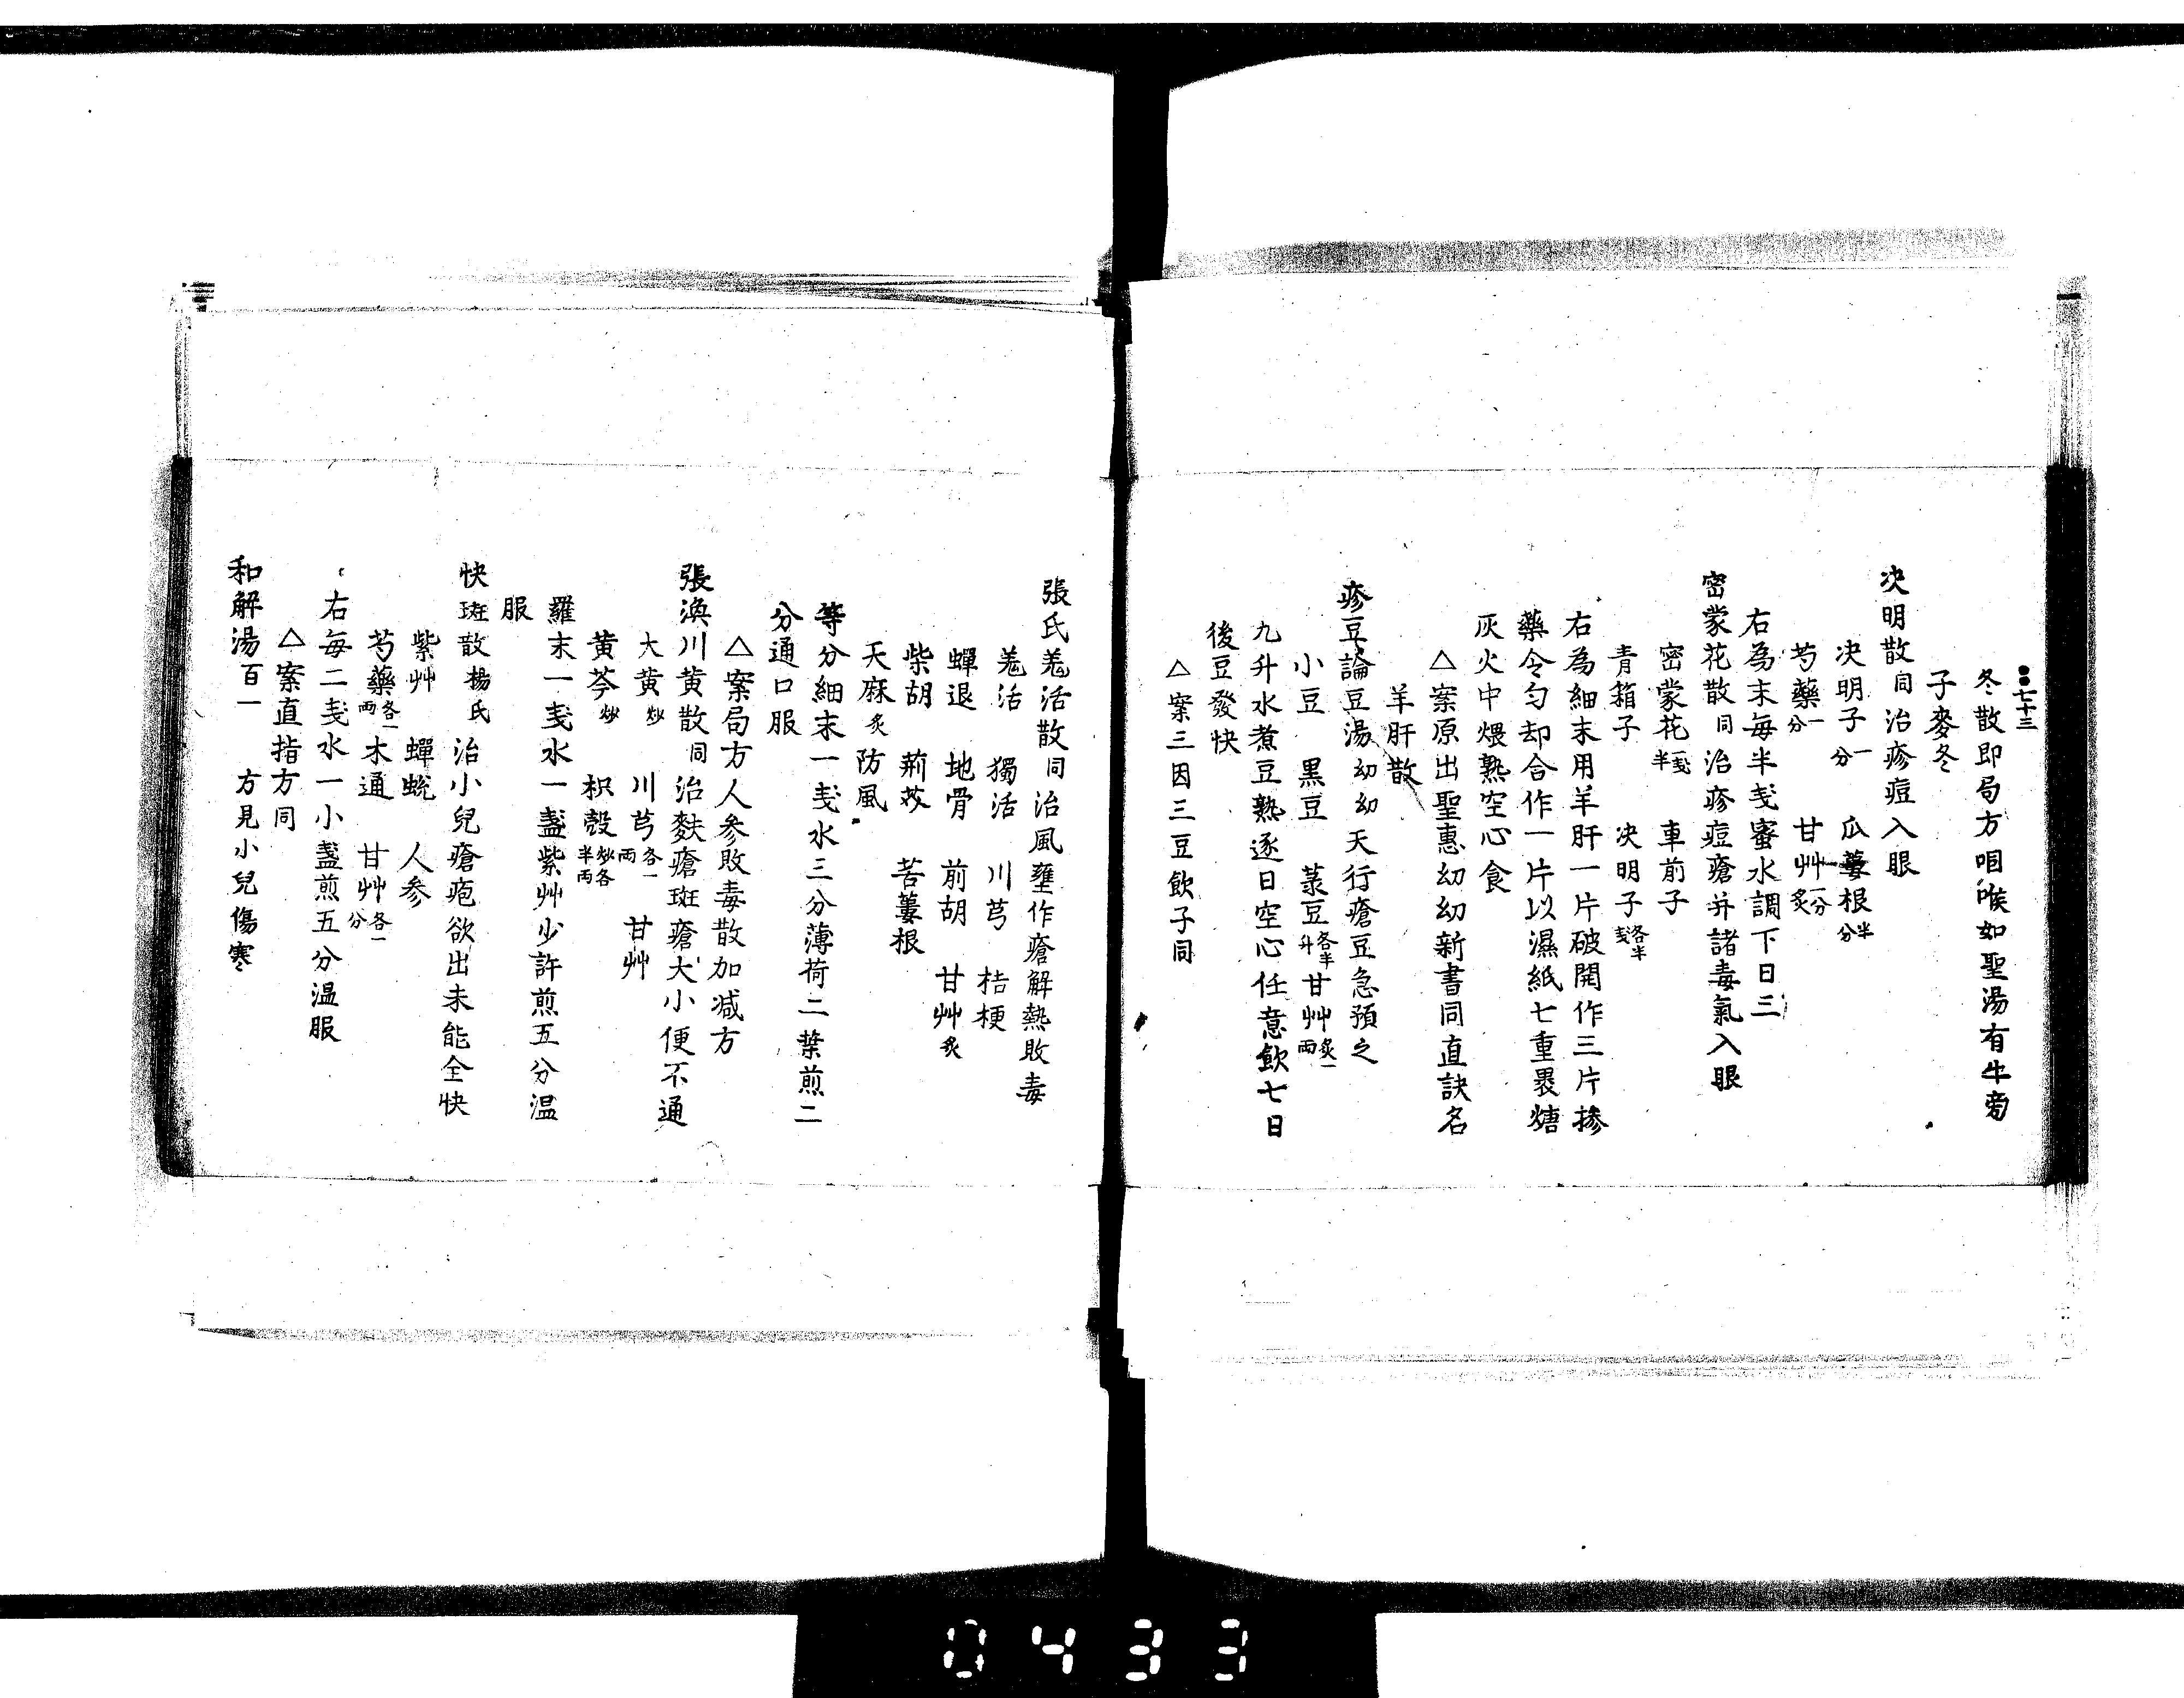 七十三
冬散即局方咽喉如聖湯有牛旁
子麥冬
决明散同治疹痘入眼
决明子一分 瓜蔞根半分
芍藥一分 甘艸一分炙
右為末每半戔蜜水調下日三
密蒙花散同治疹痘瘡并諸毒氣入眼
密蒙花戔半 車前子
青箱子 决明子各半戔
右為細末用羊肝一片破開作三片摻
藥令匀却合作一片以濕紙七重褁煻
灰火中煨熟空心食
△案原出聖惠幼幼新書同直訣名
羊肝散
疹豆論豆湯幼幼天行瘡豆急預之
小豆 黒豆 菉豆各半升 甘艸炙一兩
九升水煮豆熟逐日空心任意飲七日
後豆發快
△案三因三豆飲子同
張氏羗活散同治風壅作瘡解熱敗毒
羗活 獨活 川芎 桔梗
蟬退 地骨 前胡 甘艸炙
柴胡 荊芥 苦蔞根
天麻炙 防風
等分細末一戔水三分薄荷二葉煎二
分通口服
△案局方人参敗毒散加减方
張渙川黄散同治麩瘡斑瘡大小便不通
大黄炒 川芎各一兩 甘艸
黄芩炒 枳殻炒各半兩
羅末一戔水一盞紫艸少許煎五分温
服
快斑散楊氏 治小兒瘡疱欲出未能全快
紫艸 蟬蛻 人参
芍藥各一兩 木通 甘艸各一分
右每二戔水一小盞煎五分温服
△案直指方同
和解湯百一 方見小兒傷寒
0433